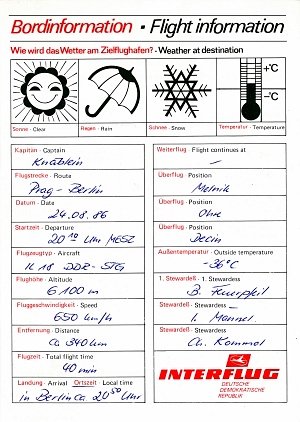 Bordinformation · Flight information
Wie wird das Wetter am Zielflughafen? · Weather at destination
+°C
-°C
Sonne · Clear
Regen · Rain
Schnee · Snow
Temperatur · Temperature
Kapitän · Captain
Flugstrecke · Route
Prag - Berlin
Datum · Date
24.08.86
Startzeit · Departure
20 10 Uhr MESZ
Flugzeugtyp · Aircraft
IL 18 DDR-STG
Flughöhe · Altitude
6.100 m
Fluggeschwindigkeit · Speed
650 km/h
Entfernung · Distance
ca. 340 km
Flugzeit · Total flight time
40 min
Landung · Arrival Ortszeit · Local time
in Berlin ca. 20 50 Uhr
Weiterflug · Flight continues at
–
Überflug · Position
Melnik
Überflug · Position
Ohre
Überflug · Position
Decin
Außentemperatur · Outside temperature
-36°C
1. Stewardeß · 1. Stewardess
B.
Stewardeß · Stewardess
Stewardeß · Stewardess
Ch. Kommol
INTERFLUG
DEUTSCHE
DEMOKRATISCHE
REPUBLIK